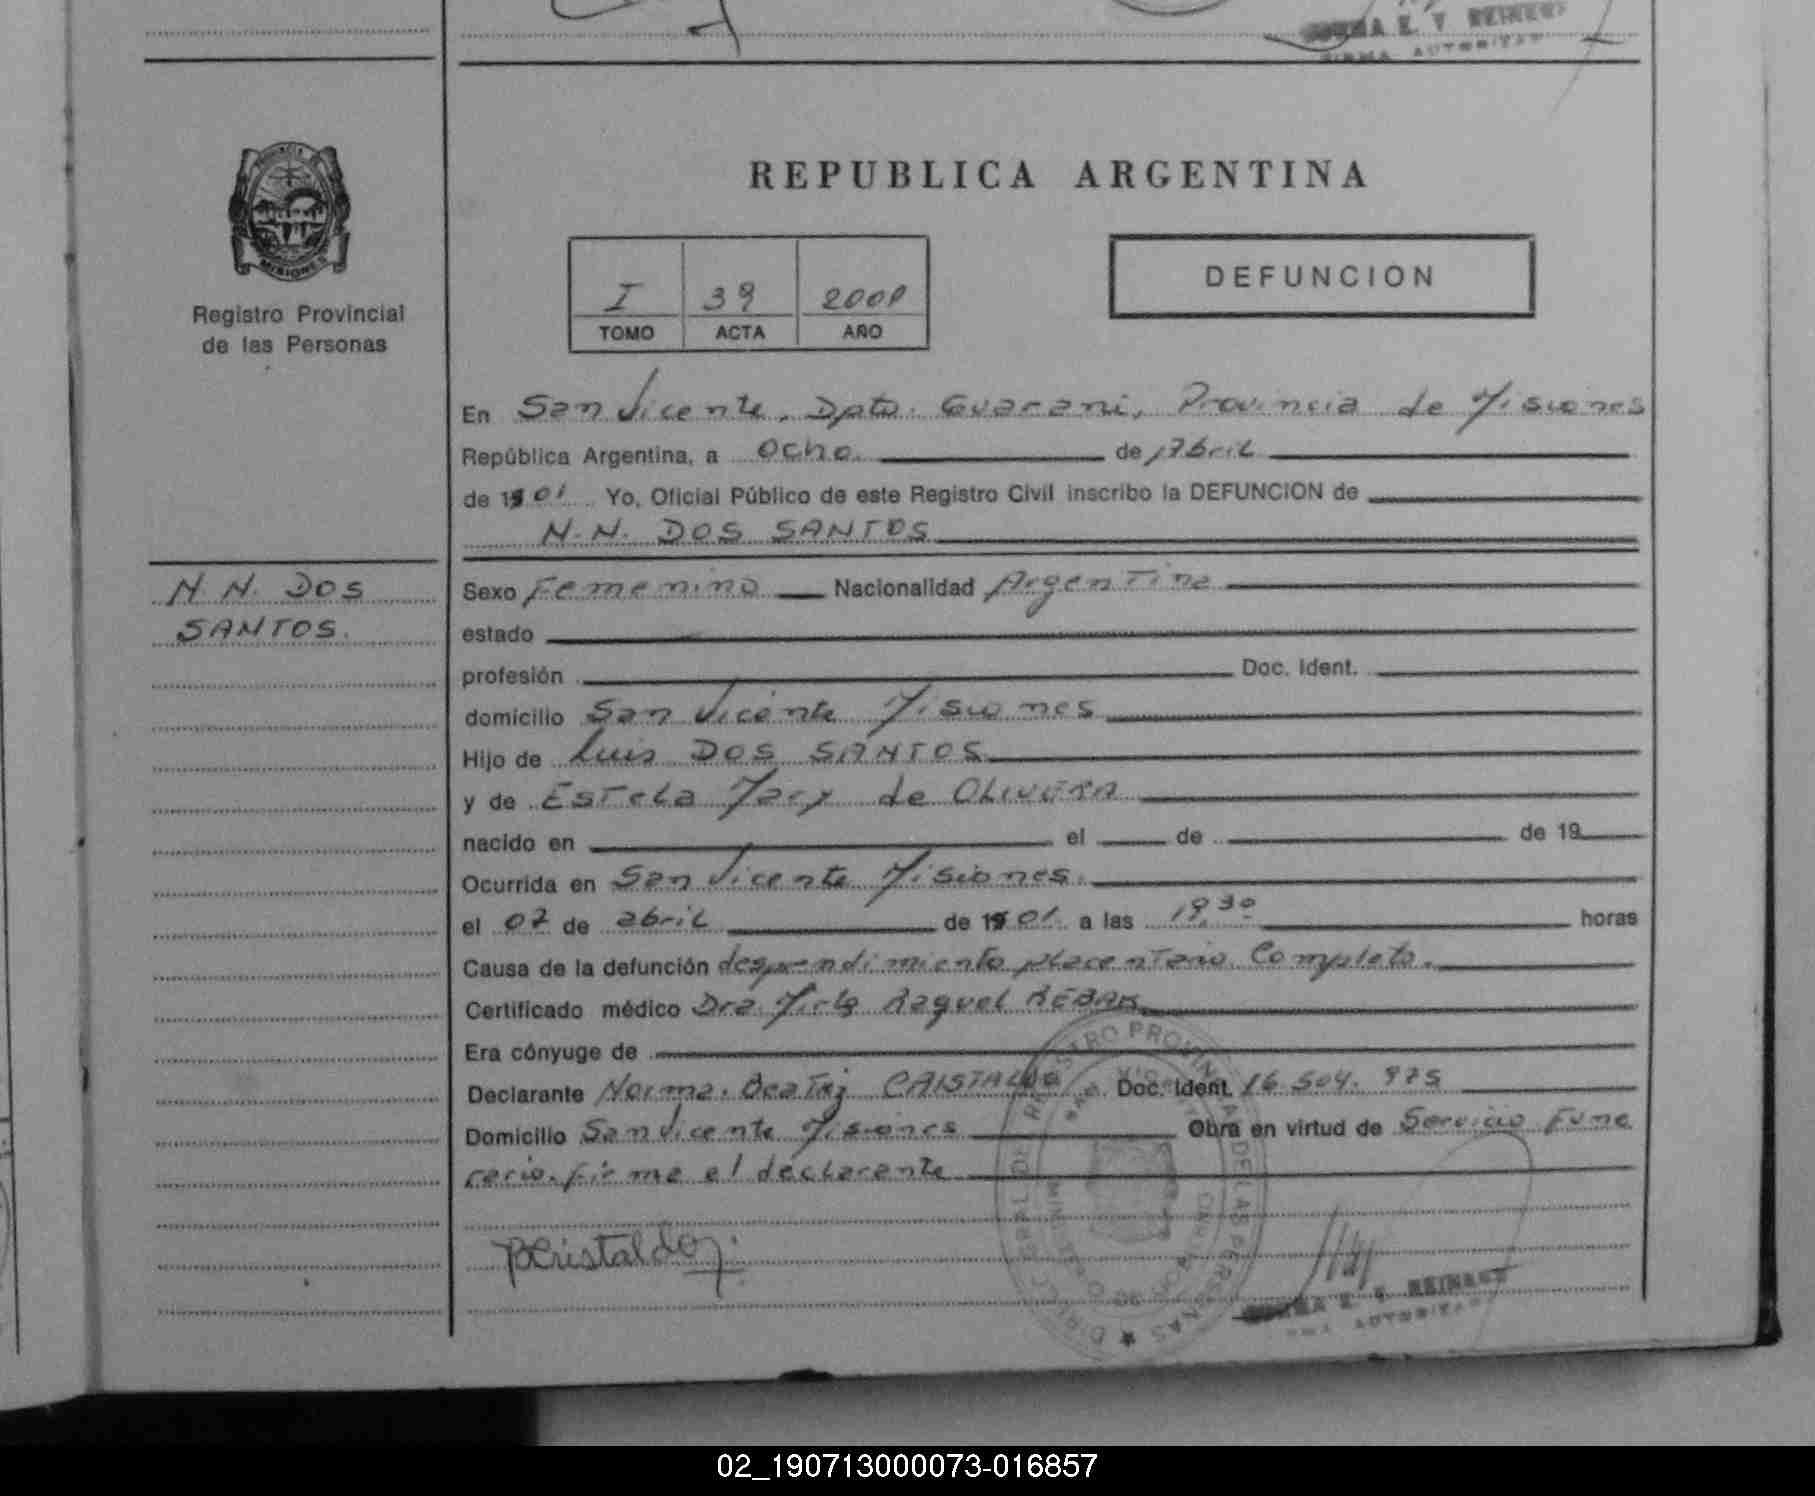 REPUBLICA ARGENTINA
PROVINCIA DE
MISIONES
Registro Provincial
de las Personas
I 39 2001
TOMO ACTA AÑO
DEFUNCION
En San Vicente, Dpto. Guarani, Provincia de Misiones
República Argentina, a ocho de Abril
de 1901 Yo, Oficial Público de este Registro Civil inscribo la DEFUNCION de
N.N. DOS SANTOS
N.N. DOS
SANTOS.
Sexo Femenino Nacionalidad Argentina
estado
profesión Doc. Ident.
domicilio San Vicente Misiones
Hijo de Luis DOS SANTOS
y de Estela Mary de OLIVERA
nacido en el de de 19
Ocurrida en San Vicente Misiones.
el 07 de abril de 1901 a las 19,30 horas
Causa de la defunción desprendimiento placentario Completo.
Certificado médico Dra. Mirta Raquel
Era cónyuge de
Declarante Norma. Beatriz CRISTALDO Doc. Ident. 16.504.975
Domicilio San Vicente Misiones Obra en virtud de Servicio Fune
rario. firma el declarante
BCristaldo
REGISTRO PROVINCIAL DE LAS PERSONAS
E. V. REINERT
FIRMA AUTORIZADA
02_190713000073-016857